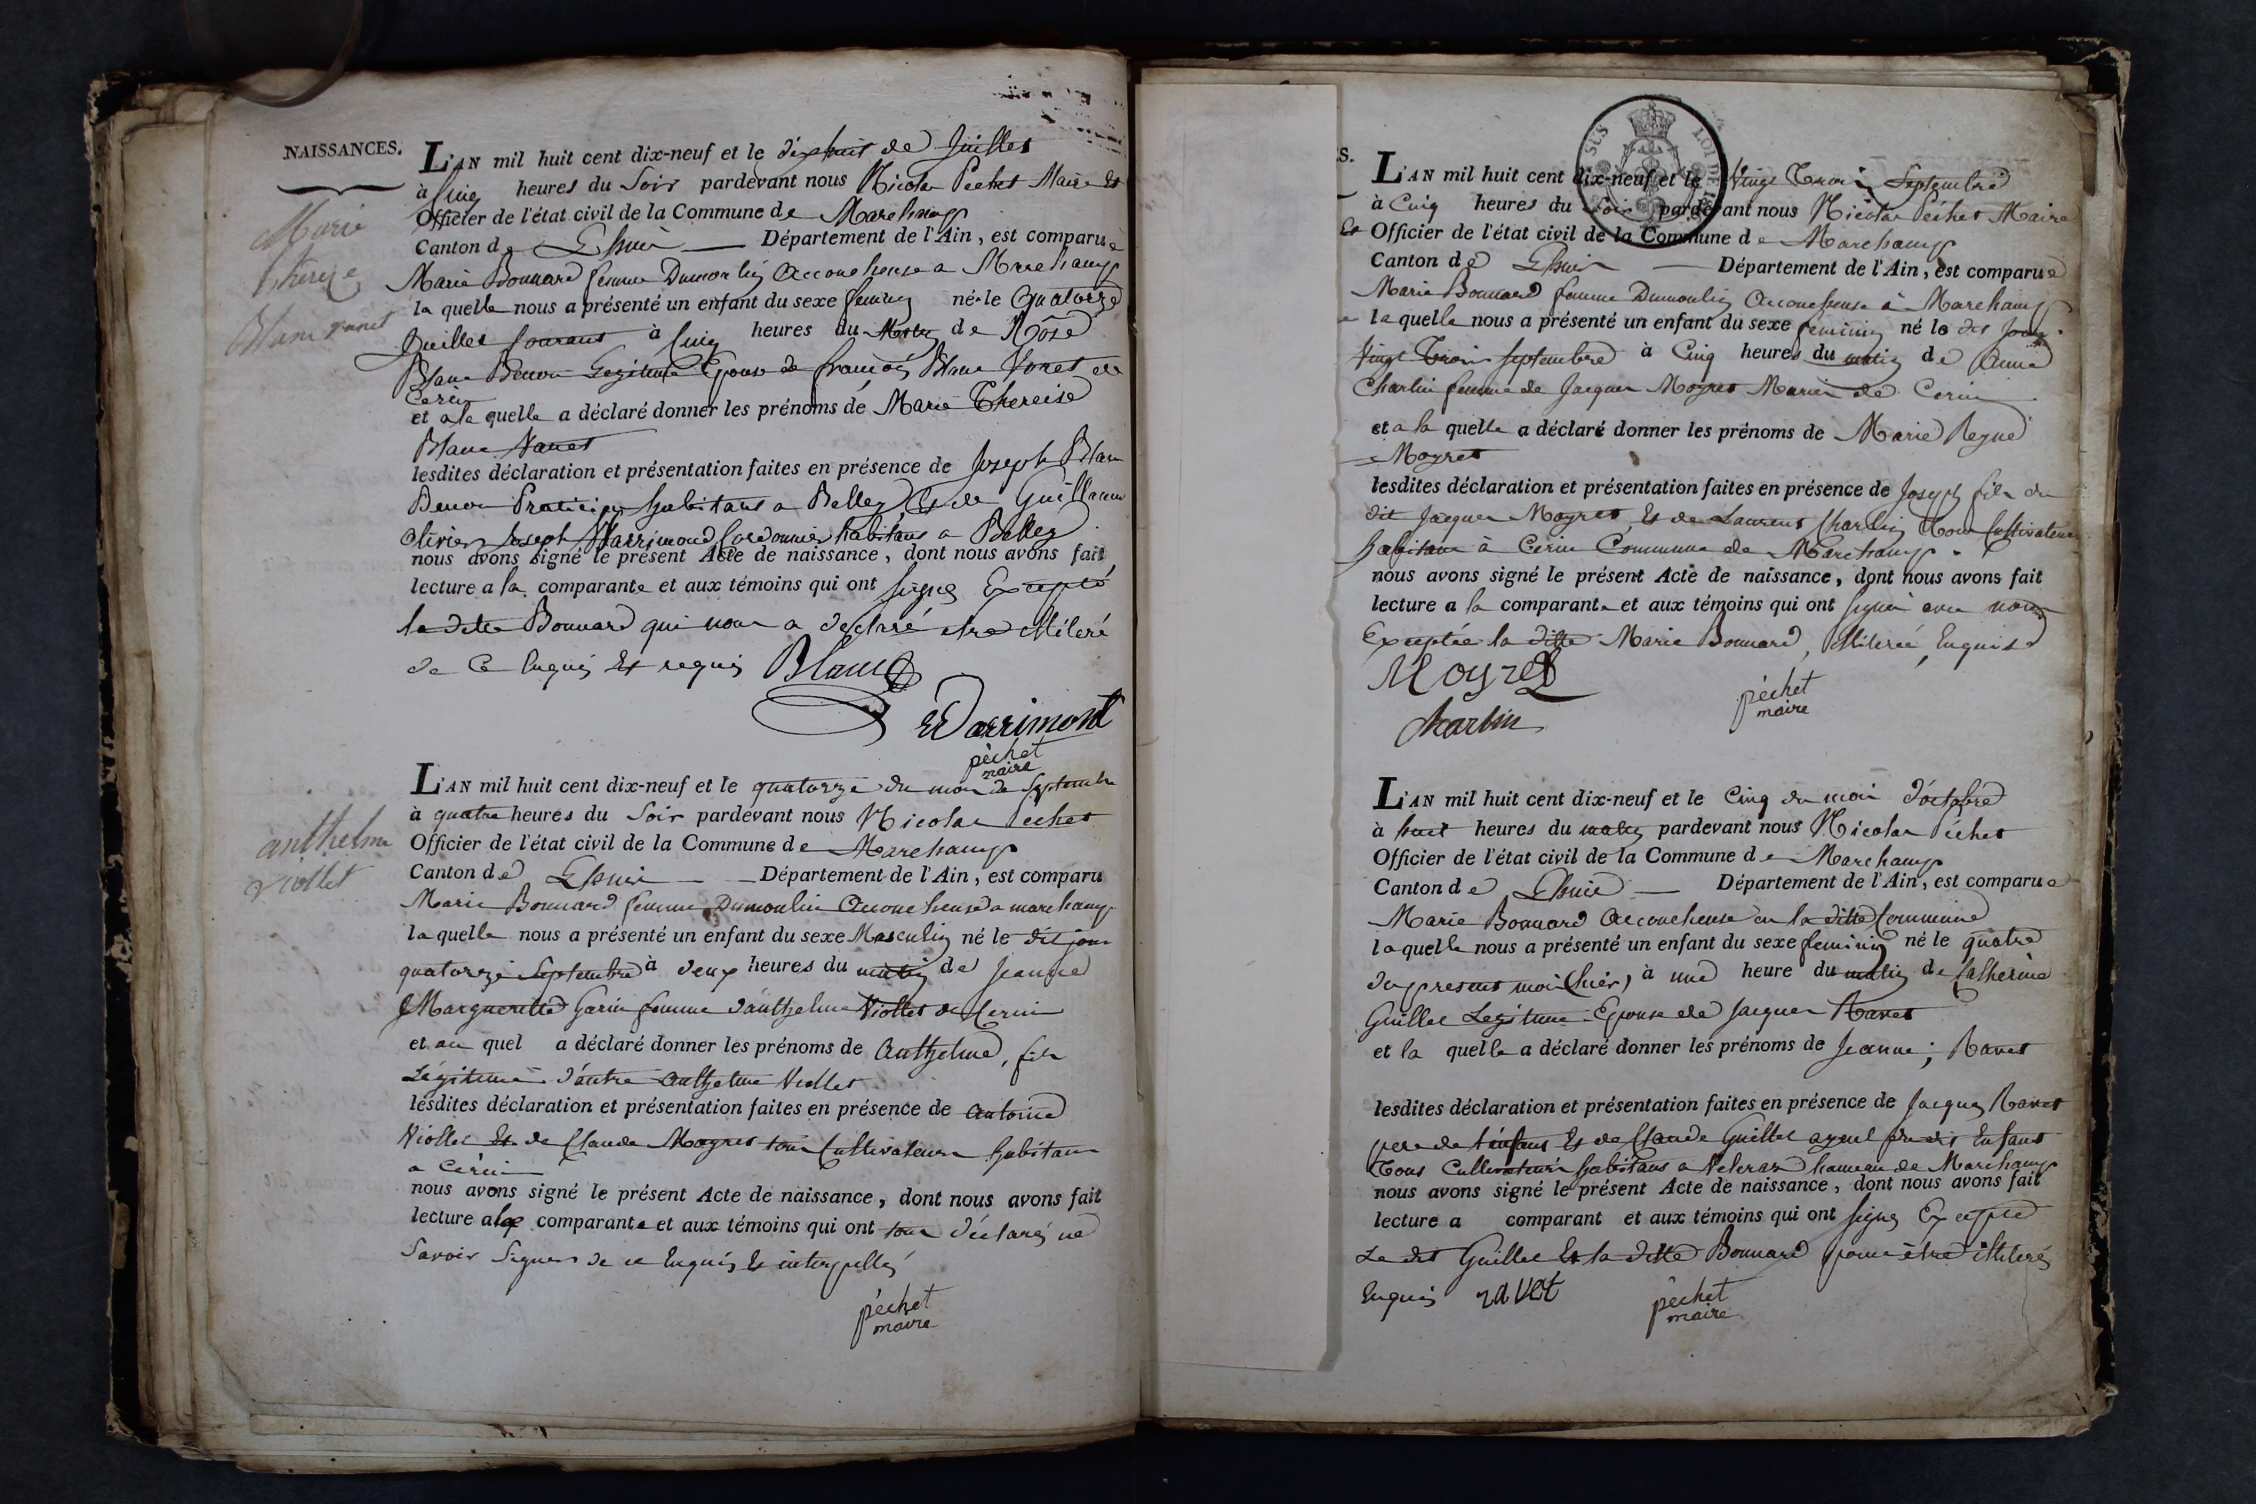 NAISSANCES.
L'AN mil huit cent dix-neuf et le dixhuit de Juillet
à Cinq heures du Soir pardevant nous Nicolas Péchet Maire Et
Officier de l'état civil de la Commune de Marchamp
Canton de Lhuis Département de l'Ain, est comparue
Marie Bonnard femme Dumoulin accoucheuse a Marchamp
la quelle nous a présenté un enfant du sexe feminin né le Quatorze
Juillet Courant à Cinq heures du Matin de Rôse
Blanc Benon Legitime Epouse de françois Blanc Vanet de
Cerin
et a la quelle a déclaré donner les prénoms de Marie Thereise
Blanc Vanet
lesdites déclaration et présentation faites en présence de Joseph Blanc
Benon Praticien habitant a Belley, Et de Guillaume
Olivier Joseph Warrimond Cordonnier habitans a Belley
nous avons signé le présent Acte de naissance, dont nous avons fait
lecture a la comparante et aux témoins qui ont signés Excepté
la ditte Bonnard qui nous a déclaré etre illiteré
de Ce Enquis Et requis Blanc
Warrimont
péchet
maire
Marie
thereze
Blanc vanet
L'AN mil huit cent dix-neuf et le quatorze du mois de Septembre
à quatre heures du Soir pardevant nous Nicolas Péchet
Officier de l'état civil de la Commune de Marchamp
Canton de Lhuis Département de l'Ain, est comparu
Marie Bonnard femme Dumoulin accoucheuse a marchamp
laquelle nous a présenté un enfant du sexe Masculin né le dit jour
quatorze Septembre à deux heures du matin de Jeanne
Margueritte Garin femme d'anthelme Viollet de Cerin
et au quel a déclaré donner les prénoms de Anthelme, fils
Légitime d'autre anthelme Viollet
lesdites déclaration et présentation faites en présence de antoine
Viollet Et de Claude Moyret tous Cultivateurs habitans
a Cérin
nous avons signé le présent Acte de naissance, dont nous avons fait
lecture a la comparante et aux témoins qui ont tous déclarés ne
Savoir Signer de ce Enquis Et interpellés
péchet
maire
anthelme
viollet
S.
L'AN mil huit cent dix-neuf et le Vingt Trois Septembre
à Cinq heures du Soir pardevant nous Nicolas Péchet Maire
Et Officier de l'état civil de la Commune de Marchamp
Canton de Lhuis Département de l'Ain, est comparue
Marie Bonnard femme Dumoulin accoucheuse à Marchamp
laquelle nous a présenté un enfant du sexe feminin né le dit jour
Vingt Trois septembre à Cinq heures du matin de Anne
Charlin femme de Jacques Moyret Mariés de Cerin
et a la quelle a déclaré donner les prénoms de Marie Reyne
Moyret
lesdites déclaration et présentation faites en présence de Joseph fils du
dit Jacques Moyret, Et de Laurent Charlin Tous Cultivateurs
habitans à Cerin Commune de Marchamp.
nous avons signé le présent Acte de naissance, dont nous avons fait
lecture a la comparante et aux témoins qui ont signés avec nous
Exceptée la ditte Marie Bonnard, illiterée, Enquise
Moyret
péchet
maire
charlin
L'AN mil huit cent dix-neuf et le Cinq du mois d'octobre
à huit heures du matin pardevant nous Nicolas Péchet
Officier de l'état civil de la Commune de Marchamp
Canton de Lhuis Département de l'Ain, est comparue
Marie Bonnard accoucheuse en la ditte Commune
laquelle nous a présenté un enfant du sexe feminin né le quatre
du present mois (hier) à une heure du matin de Catherine
Guillet Legitime Epouse de Jacques Ravet
et la quelle a déclaré donner les prénoms de Jeanne; Ravet
lesdites déclaration et présentation faites en présence de Jacques Ravet
pere de l'enfant Et de Claude Guillet ayeul du dit Enfant
Tous Cultivateurs habitans a hameau de Marchamp
nous avons signé le présent Acte de naissance, dont nous avons fait
lecture a comparant et aux témoins qui ont signés Excepté
Le dit Guillet Et la ditte Bonnard pour être illiterés
Enquis ravet
péchet
maire